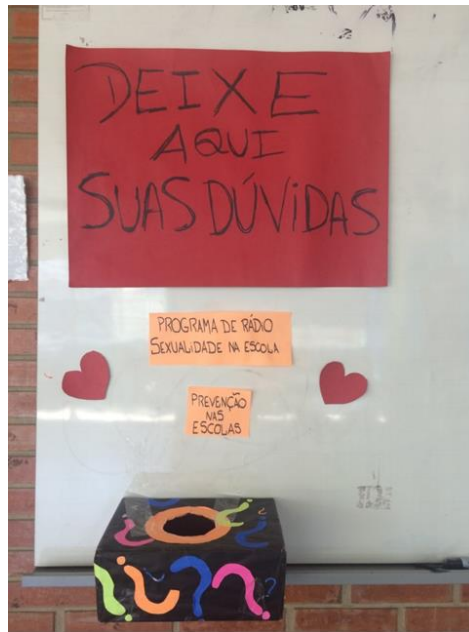 DEIXE
AQUI
SUAS DÚVIDAS
PROGRAMA DE RÁDIO
SEXUALIDADE NA ESCOLA
PREVENÇÃO
NAS
ESCOLAS